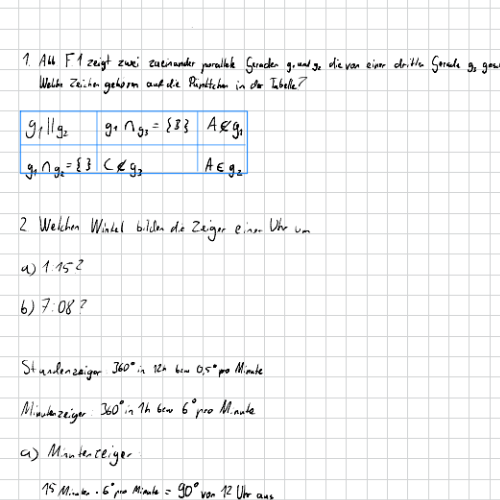 1. Abb F1 zeigt zwei zueinander parallele Geraden g₁ und g₂ die von einer dritten Gerade g₃
Welche Zeichen gehören auf die Pünktchen in der Tabelle?
g₁ || g₂ g₁ ∩ g₃ = {B} A ∉ g₁
g₁ ∩ g₂ = {} C ∉ g₃ A ∈ g₂
2. Welchen Winkel bilden die Zeiger einer Uhr um
a) 1:15?
b) 7:08?
Stundenzeiger: 360° in 12h bzw 0,5° pro Minute
Minutenzeiger: 360° in 1h bzw 6° pro Minute
a) Minutenzeiger:
15 Minuten · 6° pro Minute = 90° von 12 Uhr aus